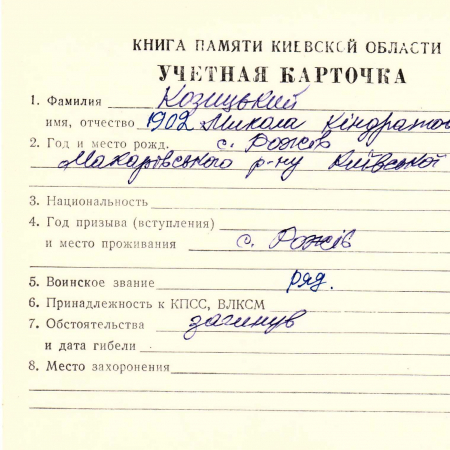 КНИГА ПАМЯТИ КИЕВСКОЙ ОБЛАСТИ
УЧЕТНАЯ КАРТОЧКА
1. Фамилия Козицький
имя, отчество 1902 Микола Кіндратов
2. Год и место рожд. с. Рожів
Макарівського р-ну Київської
3. Национальность
4. Год призыва (вступления)
и место проживания с. Рожів
5. Воинское звание ряд.
6. Принадлежность к КПСС, ВЛКСМ
7. Обстоятельства загинув
и дата гибели
8. Место захоронения